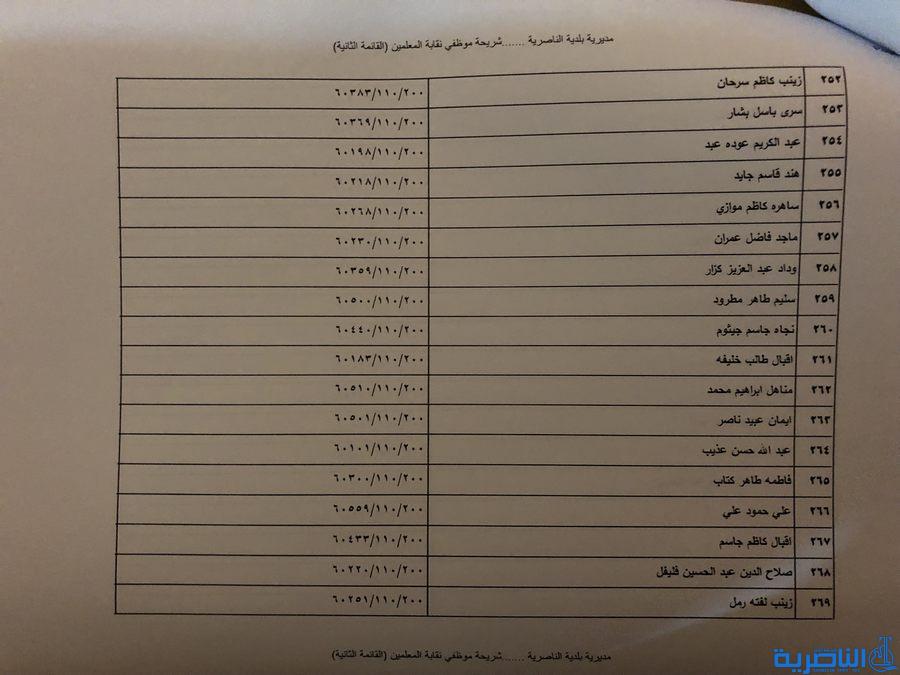 مديرية بلدية الناصرية .......شريحة موظفي نقابة المعلمين (القائمة الثانية)
٢٥٢ زينب كاظم سرحان ٦٠٣٨٣/١١٠/٢٠٠
٢٥٣ سرى باسل بشار ٦٠٣٦٩/١١٠/٢٠٠
٢٥٤ عبد الكريم عوده عبد ٦٠١٩٨/١١٠/٢٠٠
٢٥٥ هند قاسم جايد ٦٠٢١٨/١١٠/٢٠٠
٢٥٦ ساهره كاظم موازي ٦٠٢٦٨/١١٠/٢٠٠
٢٥٧ ماجد فاضل عمران ٦٠٢٣٠/١١٠/٢٠٠
٢٥٨ وداد عبد العزيز كزار ٦٠٣٥٩/١١٠/٢٠٠
٢٥٩ سليم طاهر مطرود ٦٠٥٠٠/١١٠/٢٠٠
٢٦٠ نجاه جاسم جيثوم ٦٠٤٤٠/١١٠/٢٠٠
٢٦١ اقبال طالب خليفه ٦٠١٨٣/١١٠/٢٠٠
٢٦٢ مناهل ابراهيم محمد ٦٠٥١٠/١١٠/٢٠٠
٢٦٣ ايمان عبيد ناصر ٦٠٥٠١/١١٠/٢٠٠
٢٦٤ عبد الله حسن عذيب ٦٠١٠١/١١٠/٢٠٠
٢٦٥ فاطمه طاهر كتاب ٦٠٣٠٠/١١٠/٢٠٠
٢٦٦ علي حمود علي ٦٠٥٥٩/١١٠/٢٠٠
٢٦٧ اقبال كاظم جاسم ٦٠٤٣٣/١١٠/٢٠٠
٢٦٨ صلاح الدين عبد الحسين فليفل ٦٠٢٢٠/١١٠/٢٠٠
٢٦٩ زينب لفته رمل ٦٠٢٥١/١١٠/٢٠٠
مديرية بلدية الناصرية .......شريحة موظفي نقابة المعلمين (القائمة الثانية)
الناصرية